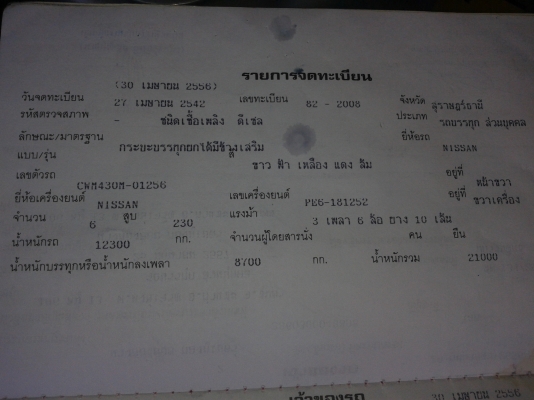 รายการจดทะเบียน
(30 เมษายน 2556)
วันจดทะเบียน 27 เมษายน 2542 เลขทะเบียน 82 - 2008 จังหวัด สุราษฎร์ธานี
รหัสตรวจสภาพ - ชนิดเชื้อเพลิง ดีเซล ประเภท รถบรรทุก ส่วนบุคคล
ลักษณะ/มาตรฐาน กระบะบรรทุกยกได้มีข้างเสริม ยี่ห้อรถ NISSAN
แบบ/รุ่น สี ขาว ฟ้า เหลือง แดง ส้ม
เลขตัวรถ CWM430M-01256 อยู่ที่ หน้าขวา
ยี่ห้อเครื่องยนต์ NISSAN เลขเครื่องยนต์ PE6-181252 อยู่ที่ ขวาเครื่อง
จำนวน 6 สูบ 230 แรงม้า 3 เพลา 6 ล้อ ยาง 10 เส้น
น้ำหนักรถ 12300 กก. จำนวนผู้โดยสารนั่ง คน ยืน
น้ำหนักบรรทุกหรือน้ำหนักลงเพลา 8700 กก. น้ำหนักรวม 21000
เจ้าของรถ
30 เมษายน 2556